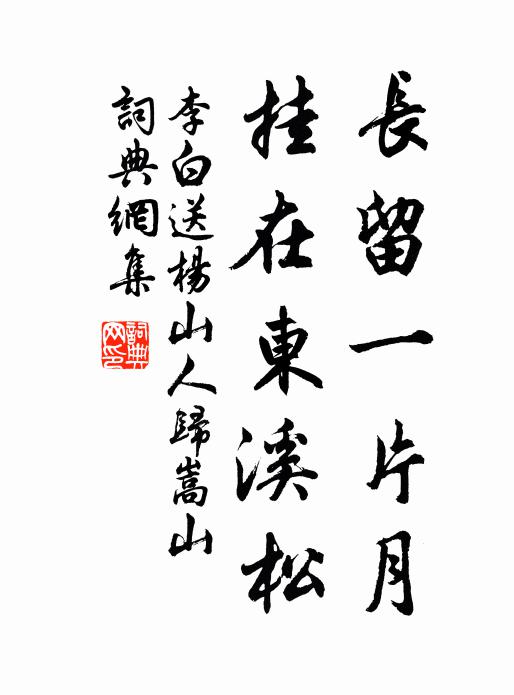 長留一片月
挂在東溪松
李白送楊山人歸嵩山
詞典網集
詞典網印